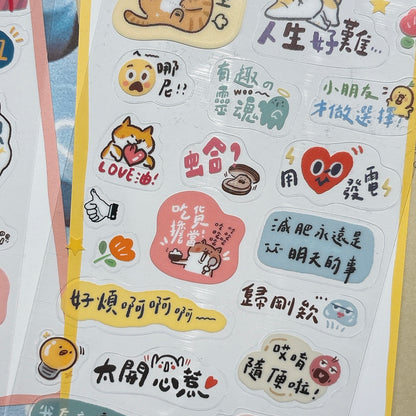 人生好難...
哪
尼!!
有趣の
woo~
靈魂
小朋友
才做選擇!
LOVE油!
蛤,
用
發電
吃貨
擔當
減肥永遠是
明天的事
好煩啊啊啊啊~
歸剛欸
太開心惹
哎唷
隨便啦!